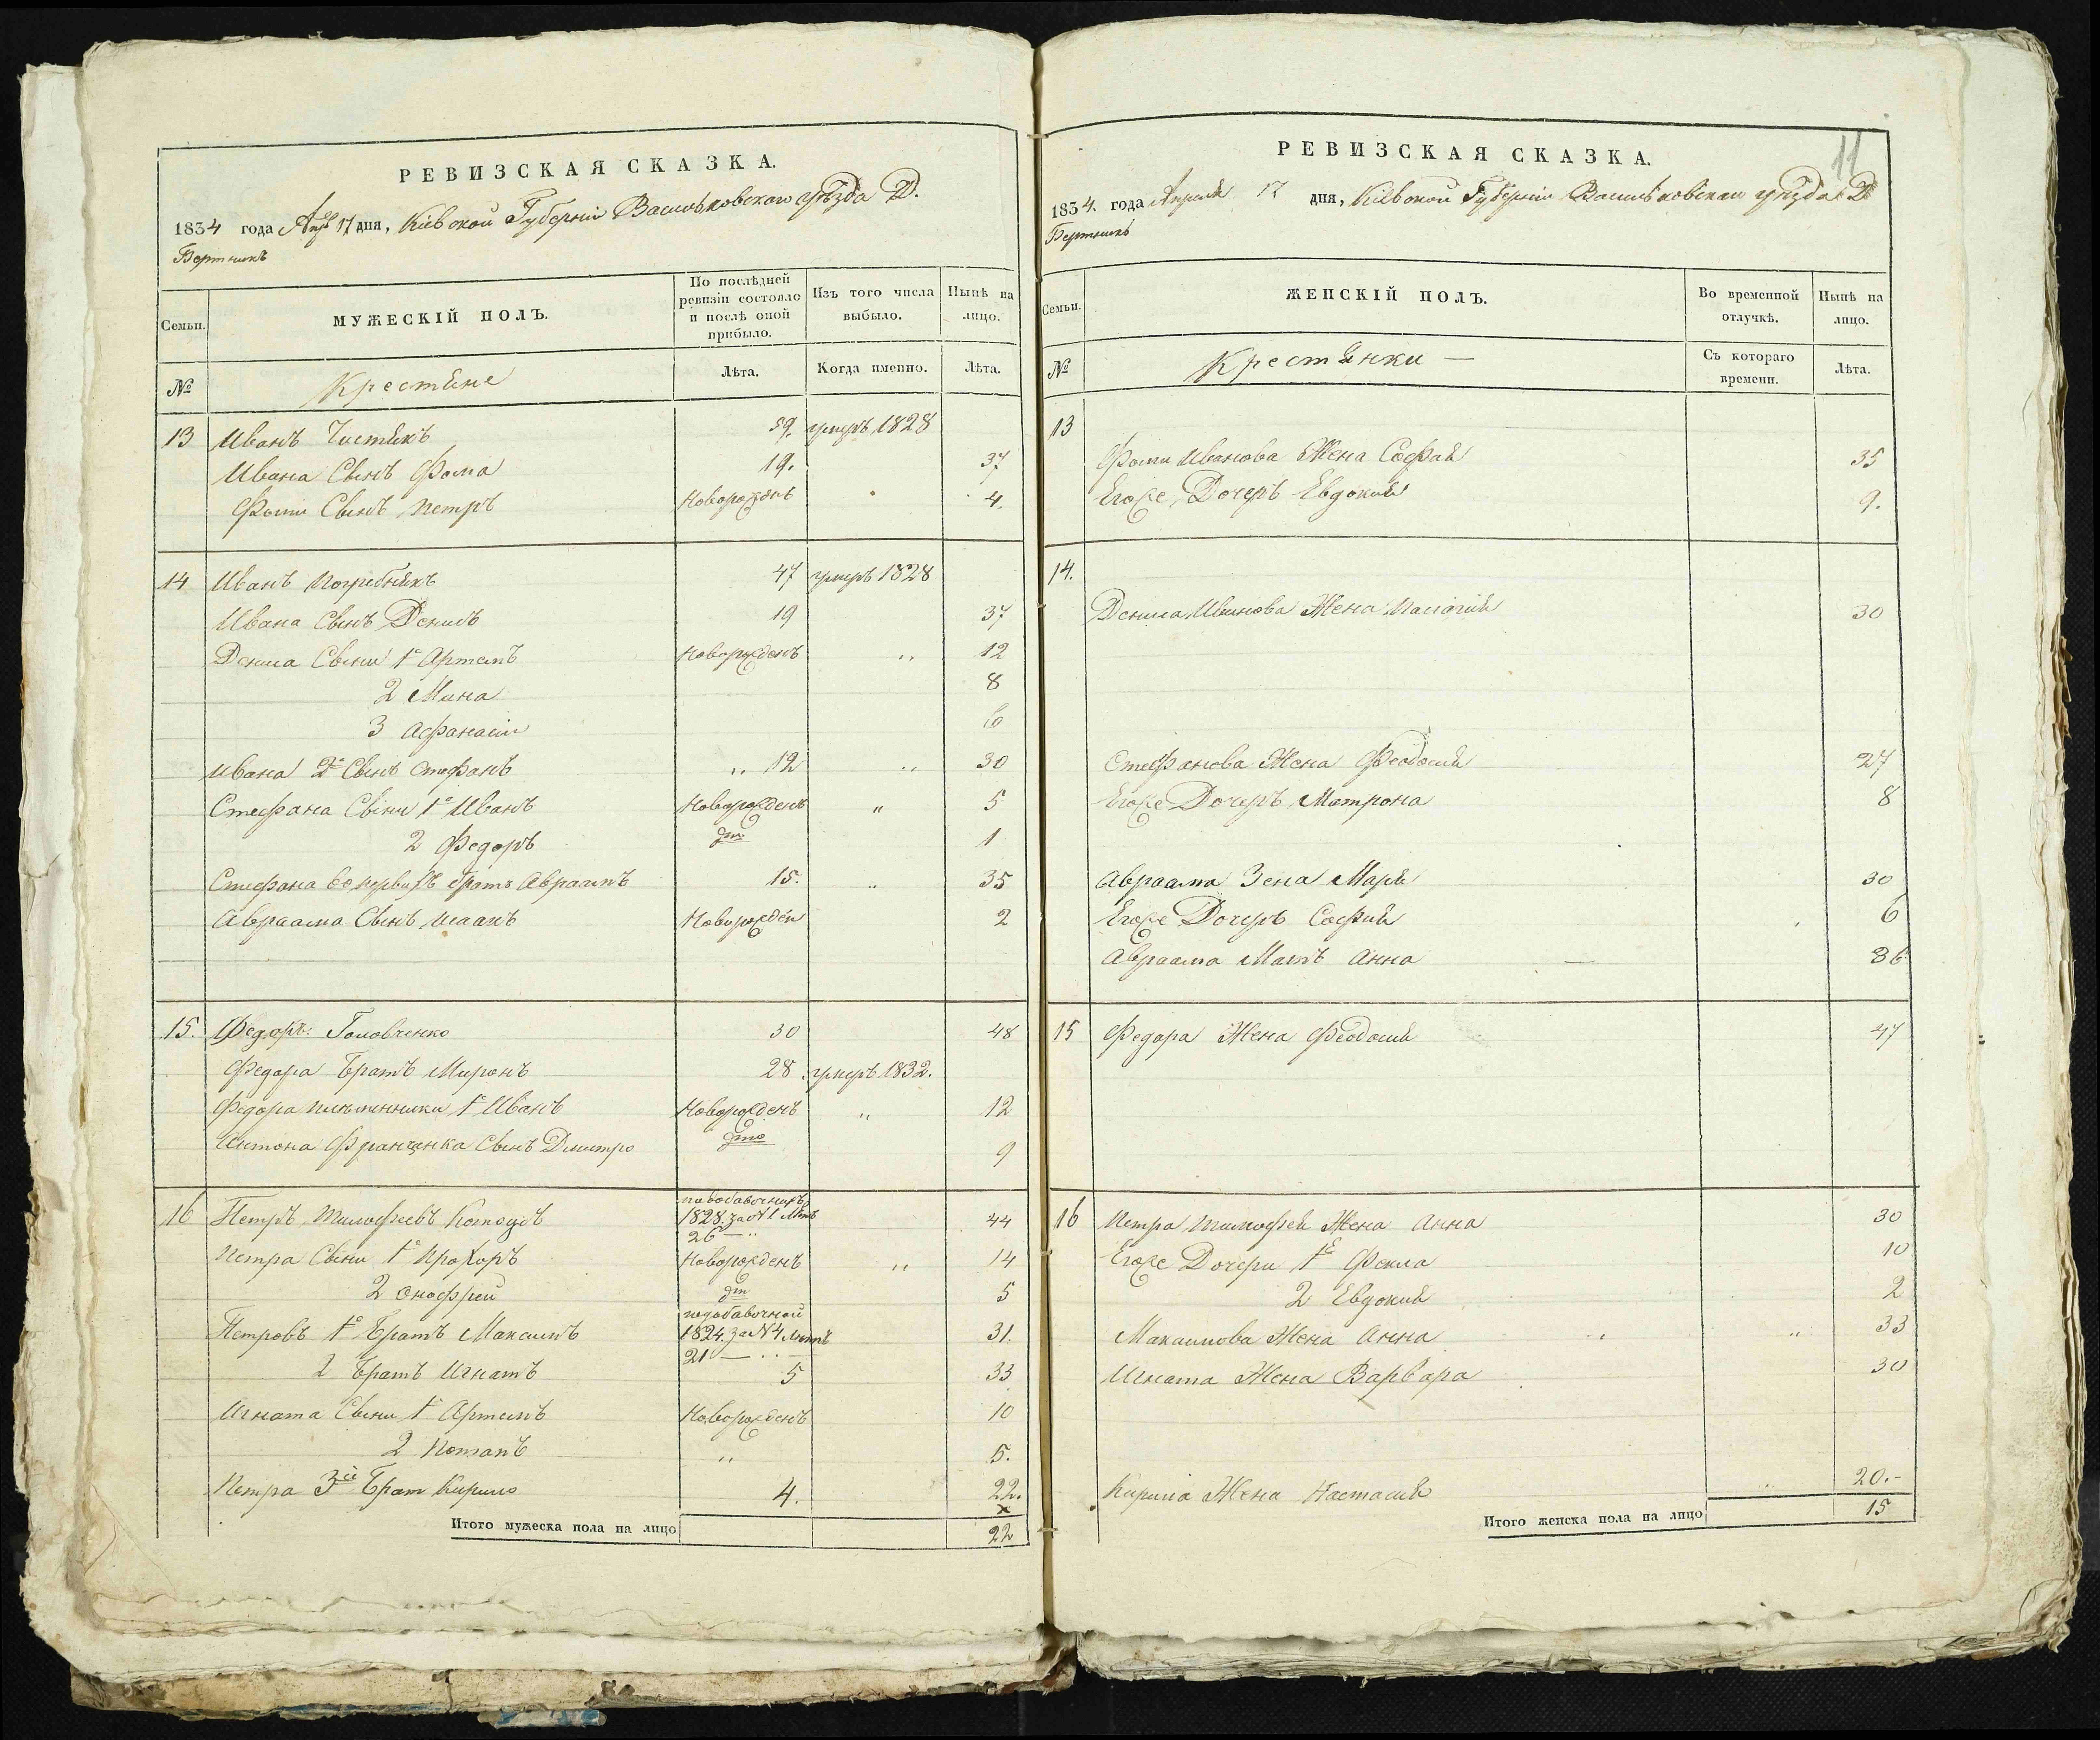 РЕВИЗСКАЯ СКАЗКА.
1834 года Апр 17 дня, Кіевской Губерніи Васильковскаго уѣзда Д.
Семьи.
МУЖЕСКІЙ ПОЛЪ.
По послѣдней ревизіи состояло и послѣ оной прибыло.
Изъ того числа выбыло.
Нынѣ на лицо.
№
Крестяне
Лѣта.
Когда именно.
Лѣта.
13 Иванъ Чистякъ 59. умеръ 1828
Ивана Сынъ Фома 19. 37
Фомы Сынъ Петръ Новорожденъ 4.
14 Иванъ Погребнякъ 47 умеръ 1828
Ивана Сынъ Денисъ 19 37
Дениса Сыни 1й Артемъ Новорожденъ „ 12
2 Мина 8
3 Афанасій 6
Ивана 2й Сынъ Стефанъ „ 12 „ 30
Стефана Сыни 1й Иванъ Новорожденъ „ 5
2 Федоръ дто 1
Стефана братъ Авраамъ 15. „ 35
Авраама Сынъ Исаакъ Новорожден 2
15. Федоръ Головченко 30 48
Федора Братъ Миронъ 28 умеръ 1832.
Федора племенники 1й Иванъ Новорожденъ „ 12
Антона Сынъ Дмитро дто 9
16 Петръ Тимофеевъ
1828. за № 1 Летъ 44
26 — „
Петра Сыни 1й Прохоръ Новорожденъ „ 14
2 Онофрей дто 5
Петровъ 1й Братъ Максимъ подобавочной
1824. за № 4 летъ 31.
21 — „ —
2 Братъ Игнатъ 5 33
Игната Сыни 1й Артемъ Новорожденъ 10
2 Потапъ „ 5.
Петра 3ій Брат Кирило 4. 22.
Итого мужеска пола на лицо 22
11
РЕВИЗСКАЯ СКАЗКА.
1834. года Апреля 17 дня, Кіевской Губерніи Васильковскаго уѣзда Д
Семьи.
ЖЕНСКІЙ ПОЛЪ.
Во временной отлучкѣ.
Нынѣ на лицо.
№
Крестянки —
Съ котораго времени.
Лѣта.
13
Фомы Иванова Жена Софія 35
Егоже Дочеръ Евдокия 9.
14.
Дениса Иванова Жена Палагія 30
Стефанова Жена Феодосия 27
Егоже Дочеръ Матрона 8
Авраама Зена Марія 30
Егоже Дочеръ София 6
Авраама Мать Анна — 86
15 Федора Жена Феодосия 47
16 Петра Тимофея Жена Анна 30
Егоже Дочери 1я Фекла 10
2 Евдокия 2
Максимова Жена Анна „ „ 33
Игната Жена Варвара 30
Кирила Жена Настасия „ 20.-
Итого женска пола на лицо 15